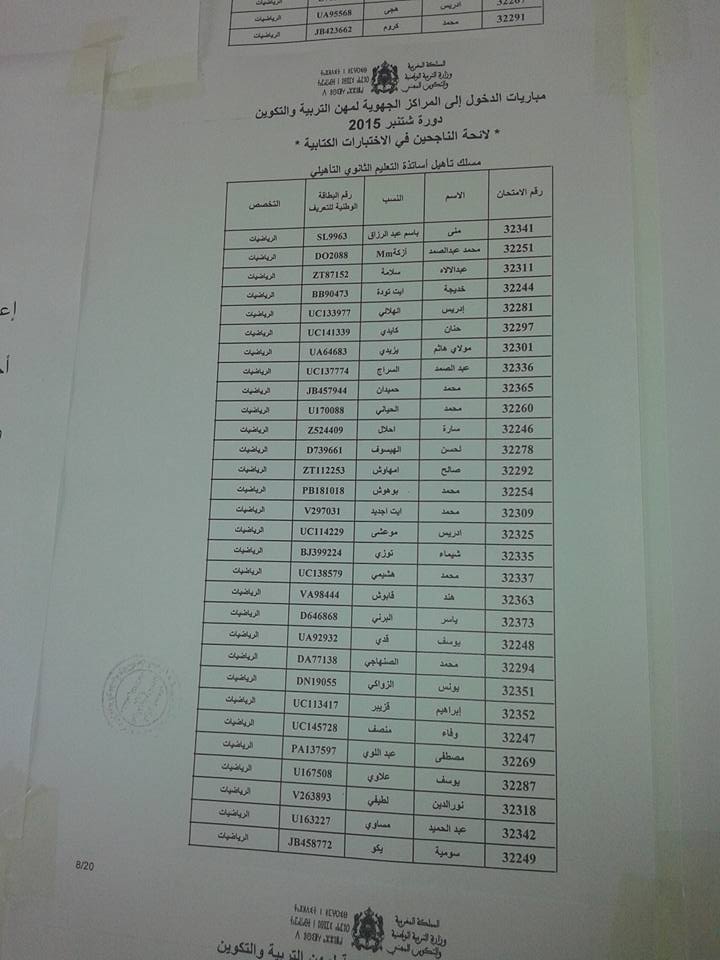 32291 محمد كروم JB423662 الرياضيات
ادريس هجى UA95568 الرياضيات
المملكة المغربية
وزارة التربية الوطنية
والتكوين المهني
مباريات الدخول إلى المراكز الجهوية لمهن التربية والتكوين
دورة شتنبر 2015
* لائحة الناجحين في الاختبارات الكتابية *
مسلك تأهيل أساتذة التعليم الثانوي التأهيلي
رقم الامتحان الاسم النسب رقم البطاقة الوطنية للتعريف التخصص
32341 منى باسم عبد الرزاق SL9963 الرياضيات
32251 محمد عبدالصمد أزكةMm DO2088 الرياضيات
32311 عبدالالاه سلامة ZT87152 الرياضيات
32244 خديجة ايت تودة BB90473 الرياضيات
32281 إدريس الهلالي UC133977 الرياضيات
32297 حنان كايدي UC141339 الرياضيات
32301 مولاي هاشم يزيدي UA64683 الرياضيات
32336 عبد الصمد السراج UC137774 الرياضيات
32365 محمد حميدان JB457944 الرياضيات
32260 محمد الحياني U170088 الرياضيات
32246 سارة احلال Z524409 الرياضيات
32278 لحسن الهيسوف D739661 الرياضيات
32292 صالح امهاوش ZT112253 الرياضيات
32254 محمد بوهوش PB181018 الرياضيات
32309 محمد ايت اجديد V297031 الرياضيات
32325 ادريس موعشى UC114229 الرياضيات
32335 شيماء نوزي BJ399224 الرياضيات
32337 محمد هشيمي UC138579 الرياضيات
32363 هند قابوش VA98444 الرياضيات
32373 ياسر البرني D646868 الرياضيات
32248 يوسف قدي UA92932 الرياضيات
32294 محمد الصنهاجي DA77138 الرياضيات
32351 يونس الزواكي DN19055 الرياضيات
32352 إبراهيم قزيبر UC113417 الرياضيات
32247 وفاء منصف UC145728 الرياضيات
32269 مصطفى عبد اللوي PA137597 الرياضيات
32287 يوسف علاوي U167508 الرياضيات
32318 نورالدين لطيفي V263893 الرياضيات
32342 عبد الحميد مساوي U163227 الرياضيات
32249 سومية يكو JB458772 الرياضيات
8/20
المملكة المغربية
وزارة التربية الوطنية
والتكوين المهني
التربية والتكوين